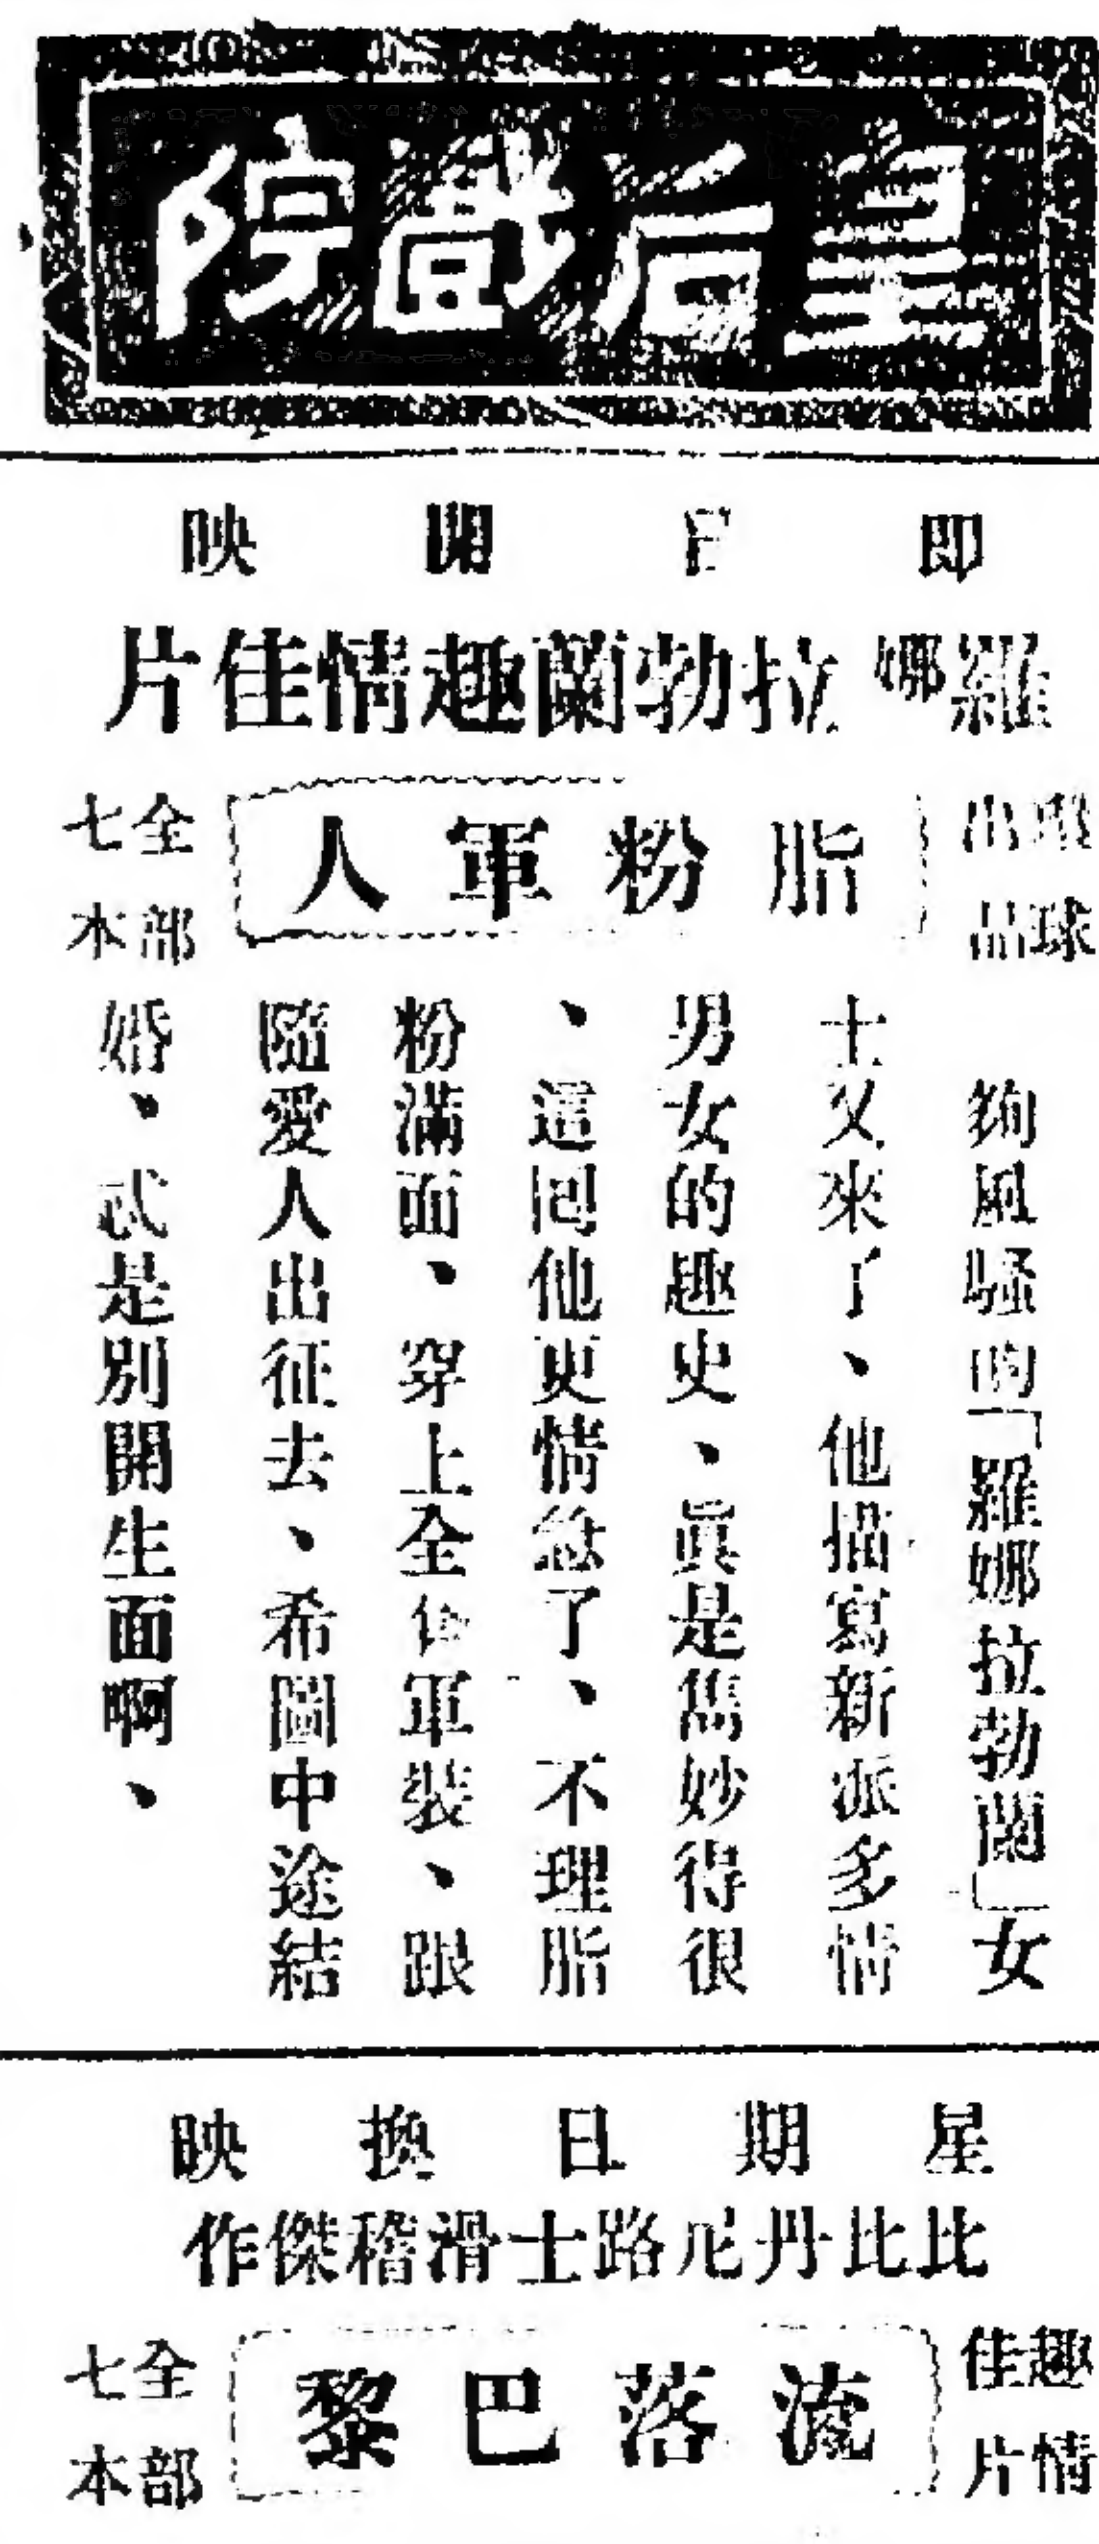 皇后戲院
即日開映
羅娜拉勃蘭趣情佳片
環球出品
脂粉軍人
全部七本
夠風騷的「羅娜拉勃蘭」女
士又來了、他描寫新派多情
男女的趣史、眞是雋妙得很
、這回他更情急了、不理脂
粉滿面、穿上全件軍裝、跟
隨愛人出征去、希圖中途結
婚、忒是別開生面啊、
星期日換映
比比丹尼路士滑稽傑作
趣情佳片
流落巴黎
全部七本